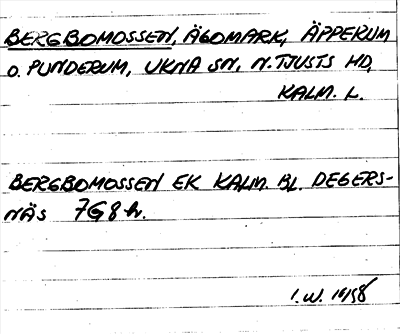 BERGBOMOSSEN, ÄGOMARK, ÄPPERUM
O. PUNDERUM, UKNA SN, N. TJUSTS HD,
KALM. L.
BERGBOMOSSEN EK KALM. BL. DEGERS-
NÄS 7G8h.
I.W.